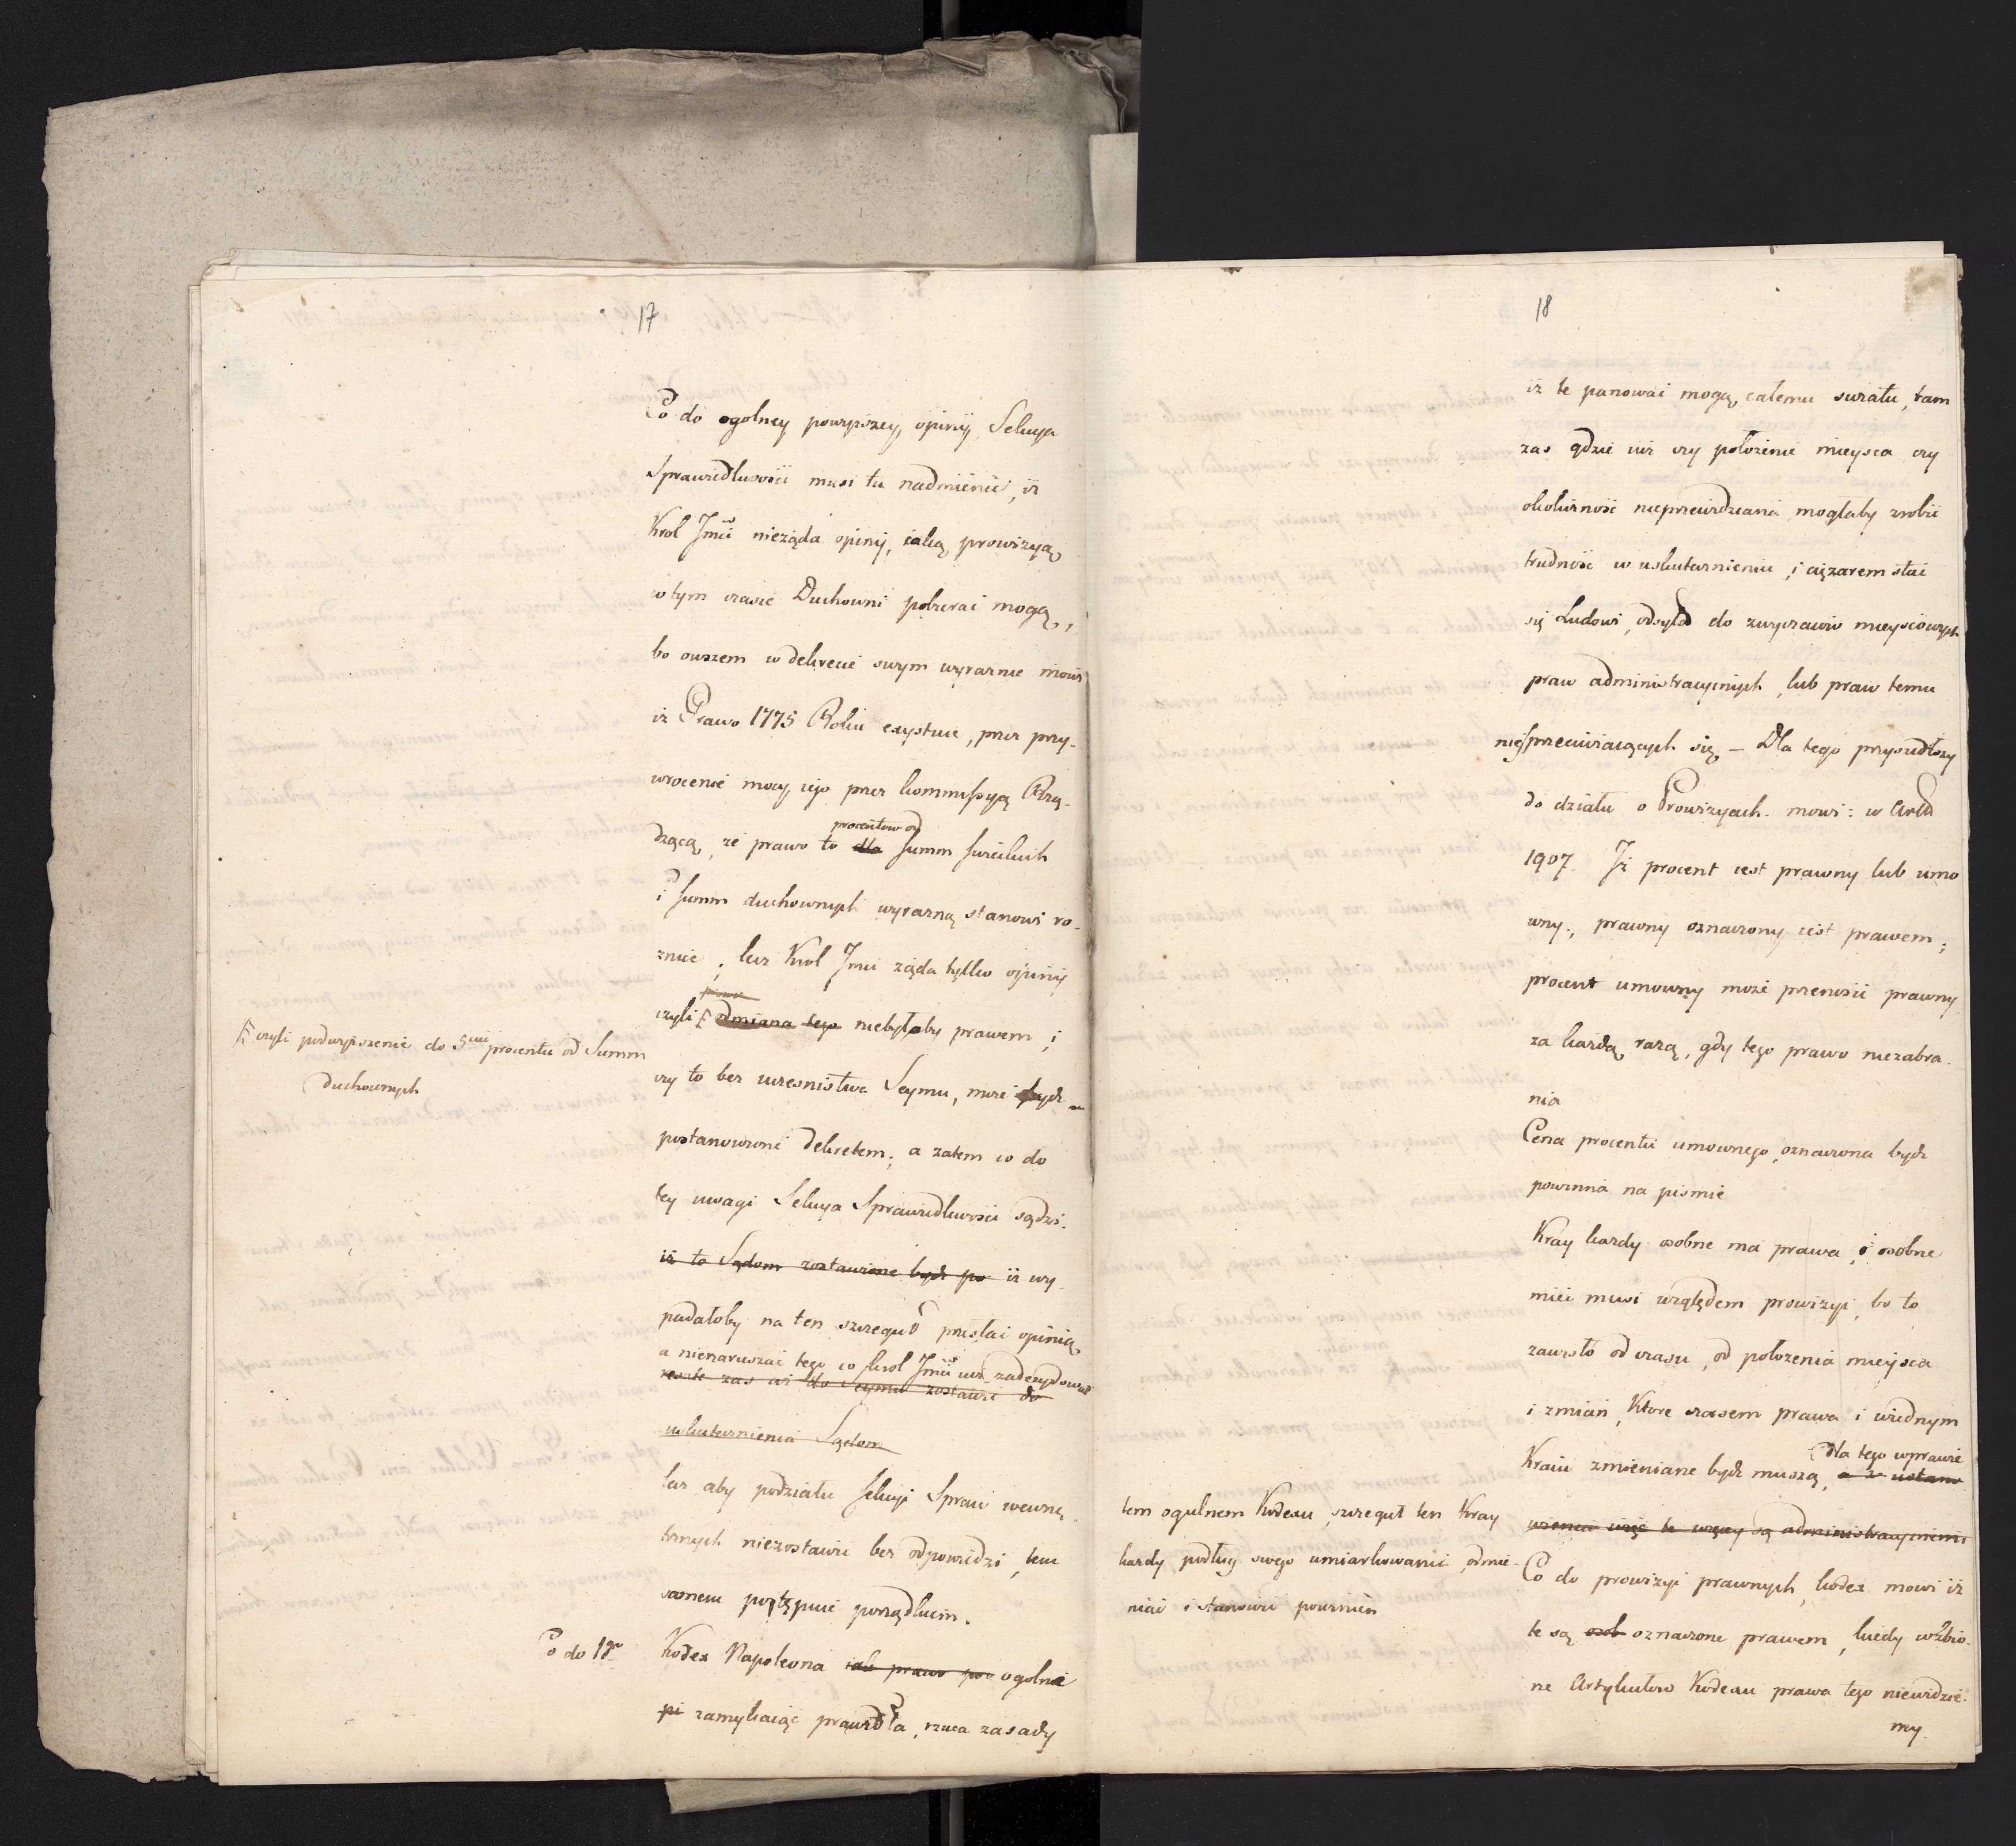 17
Co do ogolney powyższey, opinij Sekcya
Sprawiedliwości musi tu nadmienić, iż
Krol Jmć nieżąda opinij, iaką prowizyą
w tym czasie Duchowni pobierać mogą,
bo owszem w dekrecie swym wyraznie mowi
iż Prawo 1775 Roku exystuie, przez przy-
wrocenie mocy iego przez kommissyą Rzą-
dzącą, że prawo to dla procentow od summ swieckich
i summ duchownych wyrazną stanowi ro-
znice, lecz Krol Jmć żąda tylko opinij
czyli odmiana tego niebyłaby prawem, i
czyli podwyższenie do 5ciu procentu od Summ
duchownych
czy to bez uczesnistwa Seymu, może bydz
postanowione dekretem; a zatem co do
tey uwagi Sekcya Sprawiedliwości sądzi.
iż to Sądom zostawione bydz po iż wy-
padałoby na ten szczeguł przesłać opinią
a nienaruszać tego co krol Jmć iuż zadecydował
reszte zas aż do Seymu zostawić do
uskutecznienia Sądom
lecz aby podziału sekcyi Spraw wewnę
trznych niezostawić bez odpowiedzi, tem
samem postępuie porządkiem.
Co do 1go Kodex Napoleona iako prawo pow ogolne
pi zamykaiąc prawidła, rzuca zasady
18
iż te panować mogą całemu swiatu, tam
zas gdzie iuż czy położenie mieysca czy
okoliczność nieprzewidziana mogłaby zrobić
trudność w uskutecznieniu, i ciężarem stać
się Ludowi, odsyła do zwyczaiow mieyscowych
praw administracyinych, lub praw temu
niesprzeciwiaiących się – Dla tego przyszedłszy
do działu o Prowizyach mowi: w Art
1907 Jż procent iest prawny lub umo
wny, prawny oznaczony iest prawem;
procent umowny może przenosić prawny
za każdą razą, gdy tego prawo niezabra-
nia
Cena procentu umownego, oznaczona bydz
powinna na pismie
Kray kazdy osobne ma prawa, i osobne
mieć musi względem prowizyi, bo to
zawisło od czasu, od położenia mieysca
i zmian, ktore czasem prawa i w iednym
Kraiu zmieniane bydz muszą, a ze ustano dla tego w prawie
wienia więc te więcey są administracyinemi
tem ogulnem Kodexu, szczeguł ten Kray
kazdy podług swego umiarkowania odmie-
niać i stanowić powinien
Co do prowizyi prawnych, kodex mowi iż
te są osob oznaczone prawem, kiedy w zbio-
ze Artykułow Kodexu prawa tego niewidzie-
my